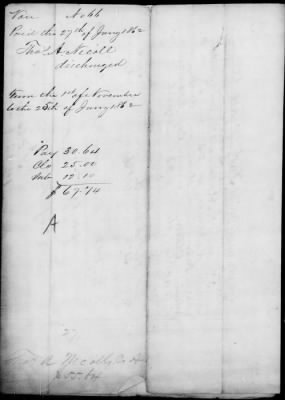 Vou No 66
Paid the 27th of Jany 1862
Thos A Nicoll
discharged
From the 1st of November
to the 25th of Jany 1862
Pay 30.64
Clo 25.00
Sub 12.10
$ 67.74
A
27
Thos A
$55.64